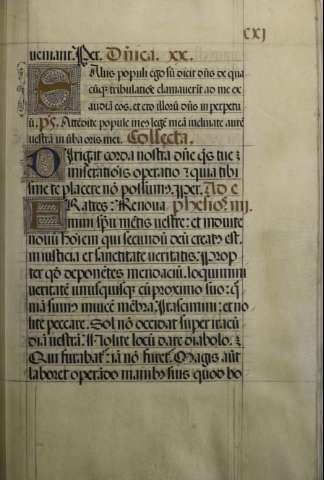 cxj
ueniant. Per. Dñica. xx.
Salus populi ego sũ dicit dñs de qua
cũq; tribulatiõe clamauerit ad me ex
audiã eos. et ero illorũ dñs in perpetu
ũ. ps. Attẽdite popule meus legẽ meã inclinate aurẽ
vestrã in ũba oris mei. Collecta.
Dirigat corda nostra dñe q̃s tue
miserationis operatio quia tibi
sine te placere nõ possum9. per. Ad e
Fratres: Renoua phesios iiij.
mini spũ mẽtis vestre: et induite
nouũ hoĩem qui secundũ deũ creat9 est.
in iusticia et sanctitate ueritatis. Prop
ter qõ deponẽtes mendaciũ. loquimini
ueritatẽ unusquisq; cũ proximo suo: q̃
niã sum9 inuicẽ mẽbra. Irascimini: et no
lite peccare. Sol nõ occidat super iracũ
diã uestrã: Nolite locũ dare diabolo.
Qui furabat̃: iã nõ furet̃. Magis aũt
laboret operãdo manib9 suis quod bo